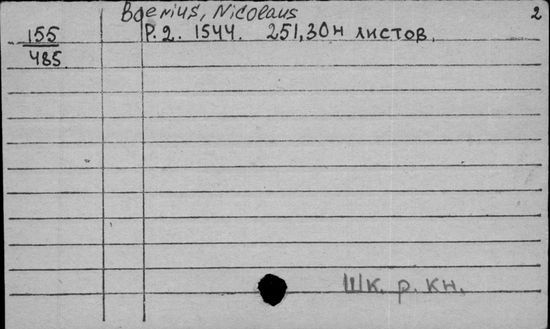 Boerius, Nicolaus 2
155
485
P. 2. 1544. 251, 30н листов.
Шк. р. кн.